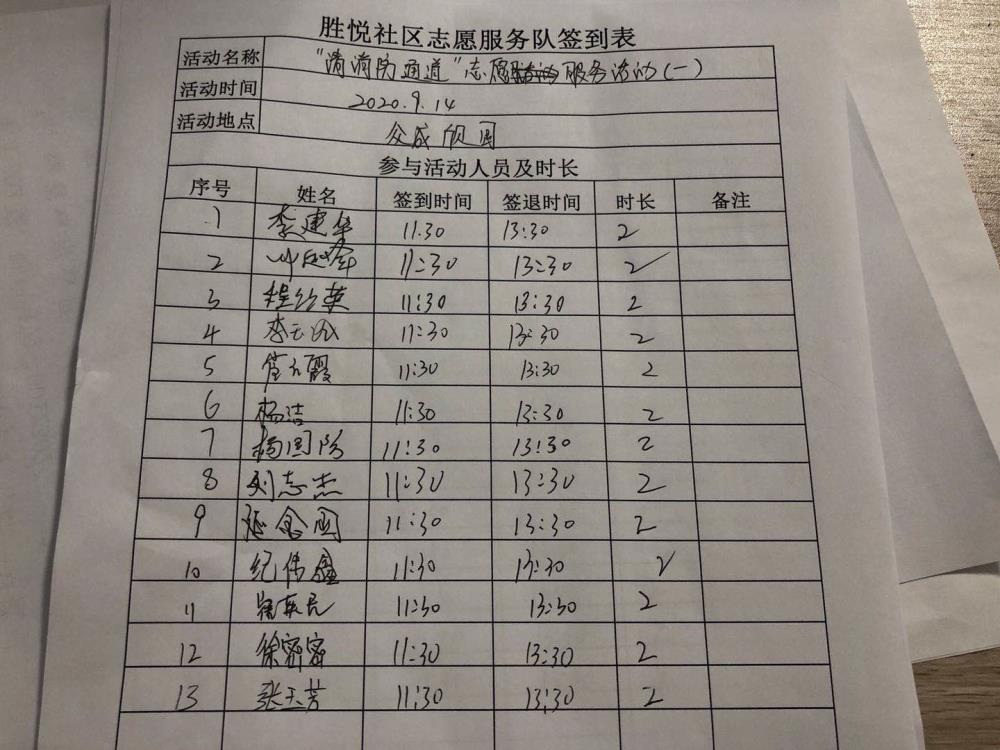 胜悦社区志愿服务队签到表
活动名称 "清消防通道"志愿服务活动(一)
活动时间 2020.9.14
活动地点 众成
参与活动人员及时长
序号 姓名 签到时间 签退时间 时长 备注
1 李建华 11:30 13:30 2
2 11:30 13:30 2
3 程 英 11:30 13:30 2
4 李 11:30 13:30 2
5 霞 11:30 13:30 2
6 杨洁 11:30 13:30 2
7 杨国 11:30 13:30 2
8 刘志杰 11:30 13:30 2
9 11:30 13:30 2
10 纪伟鑫 11:30 13:30 2
11 11:30 13:30 2
12 徐密密 11:30 13:30 2
13 张玉芳 11:30 13:30 2